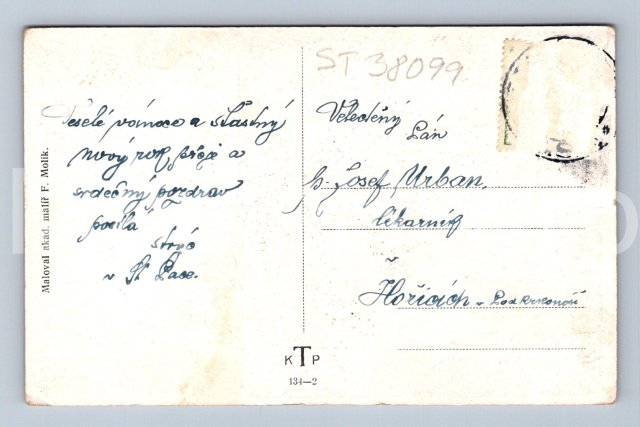 Maloval akad. malíř F. Molik.
Veselé vánoce a šťastný
nový rok přeje a
srdečný pozdrav
posílá
strýc
v St. Pace.
ST 38099
Veleděný
Pán
p. Josef Urban.
lékarník
Hořicích v Podkrkonoší
K T P
134—2